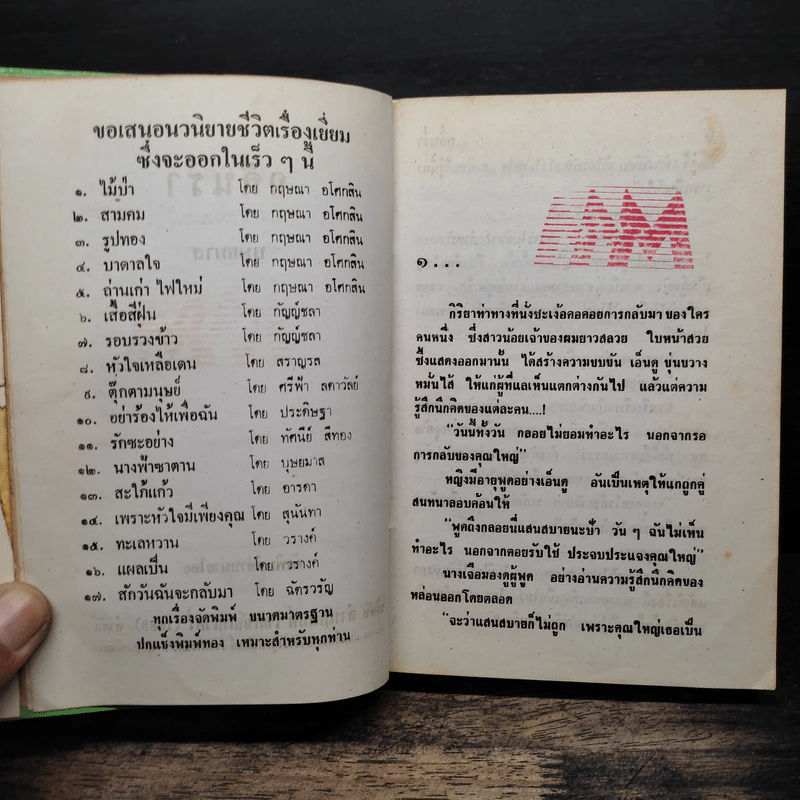 ขอเสนอนวนิยายชีวิตเรื่องเยี่ยม
ซึ่งจะออกในเร็ว ๆ นี้
๑. ไม้ป่า โดย กฤษณา อโศกสิน
๒. สามคม โดย กฤษณา อโศกสิน
๓. รูปทอง โดย กฤษณา อโศกสิน
๔. บาดาลใจ โดย กฤษณา อโศกสิน
๕. ถ่านเก่า ไฟใหม่ โดย กฤษณา อโศกสิน
๖. เสื้อสีฝุ่น โดย กัญญ์ชลา
๗. รอบรวงข้าว โดย กัญญ์ชลา
๘. หัวใจเหลือเดน โดย สราญรส
๙. ตุ๊กตามนุษย์ โดย ศรีฟ้า ลดาวัลย์
๑๐. อย่าร้องไห้เพื่อฉัน โดย ประดิษฐา
๑๑. รักซะอย่าง โดย ทัศนีย์ สีทอง
๑๒. นางฟ้าซาตาน โดย บุษยมาส
๑๓. สะใภ้แก้ว โดย อารดา
๑๔. เพราะหัวใจมีเพียงคุณ โดย สุนันทา
๑๕. ทะเลหวาน โดย วรางค์
๑๖. แผลเป็น โดย วรางค์
๑๗. สักวันฉันจะกลับมา โดย ฉัตรวรัญ
ทุกเรื่องจัดพิมพ์ ขนาดมาตรฐาน
ปกแข็งพิมพ์ทอง เหมาะสำหรับทุกท่าน
๑...
กิริยาท่าทางที่นั่งชะเง้อคอคอยการกลับมา ของใคร
คนหนึ่ง ซึ่งสาวน้อยเจ้าของผมยาวสลวย ใบหน้าสวย
ซึ้งแสดงออกมานั้น ได้สร้างความขบขัน เอ็นดู ขุ่นขวาง
หมั่นไส้ ให้แก่ผู้ที่แลเห็นแตกต่างกันไป แล้วแต่ความ
รู้สึกนึกคิดของแต่ละคน....!
“วันนี้ทั้งวัน กลอยไม่ยอมทำอะไร นอกจากรอ
การกลับของคุณใหญ่”
หญิงมีอายุพูดอย่างเอ็นดู อันเป็นเหตุให้แกถูกคู่
สนทนาลอบค้อนให้
“พูดถึงกลอยนี่แสนสบายนะป้า วัน ๆ ฉันไม่เห็น
ทำอะไร นอกจากคอยรับใช้ ประจบประแจงคุณใหญ่”
นางเจือมองดูผู้พูด อย่างอ่านความรู้สึกนึกคิดของ
หล่อนออกโดยตลอด
“จะว่าแสนสบายก็ไม่ถูก เพราะคุณใหญ่เธอเป็น